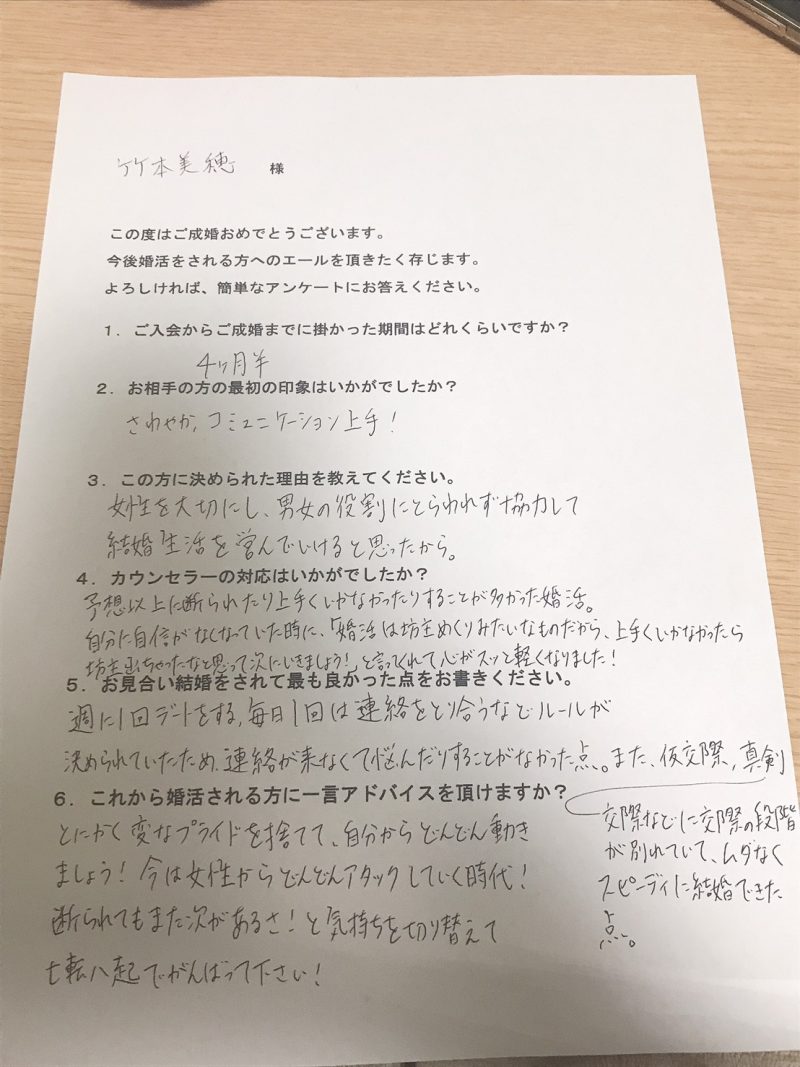 竹本美穂 様
この度はご成婚おめでとうございます。
今後婚活をされる方へのエールを頂きたく存じます。
よろしければ、簡単なアンケートにお答えください。
１．ご入会からご成婚までに掛かった期間はどれくらいですか？
4ヶ月半
２．お相手の方の最初の印象はいかがでしたか？
さわやか、コミュニケーション上手！
３．この方に決められた理由を教えてください。
女性を大切にし、男女の役割にとらわれず協力して
結婚生活を営んでいけると思ったから。
４．カウンセラーの対応はいかがでしたか？
予想以上に断られたり上手くいかなかったりすることが多かった婚活。
自分に自信がなくなっていた時に、「婚活は坊主めくりみたいなものだから、上手くいかなかったら
坊主出ちゃったなと思って次にいきましょう！」と言ってくれて心がスッと軽くなりました！
５．お見合い結婚をされて最も良かった点をお書きください。
週に1回デートをする，毎日1回は連絡をとり合うなどルールが
決められていたため、連絡が来なくて悩んだりすることがなかった点。また、仮交際，真剣
交際などに交際の段階
が別れていて、ムダなく
スピーディに結婚できた
点。
６．これから婚活される方に一言アドバイスを頂けますか？
とにかく変なプライドを捨てて、自分からどんどん動き
ましょう！今は女性からどんどんアタックしていく時代！
断られてもまた次があるさ！と気持ちを切り替えて
七転八起でがんばって下さい！